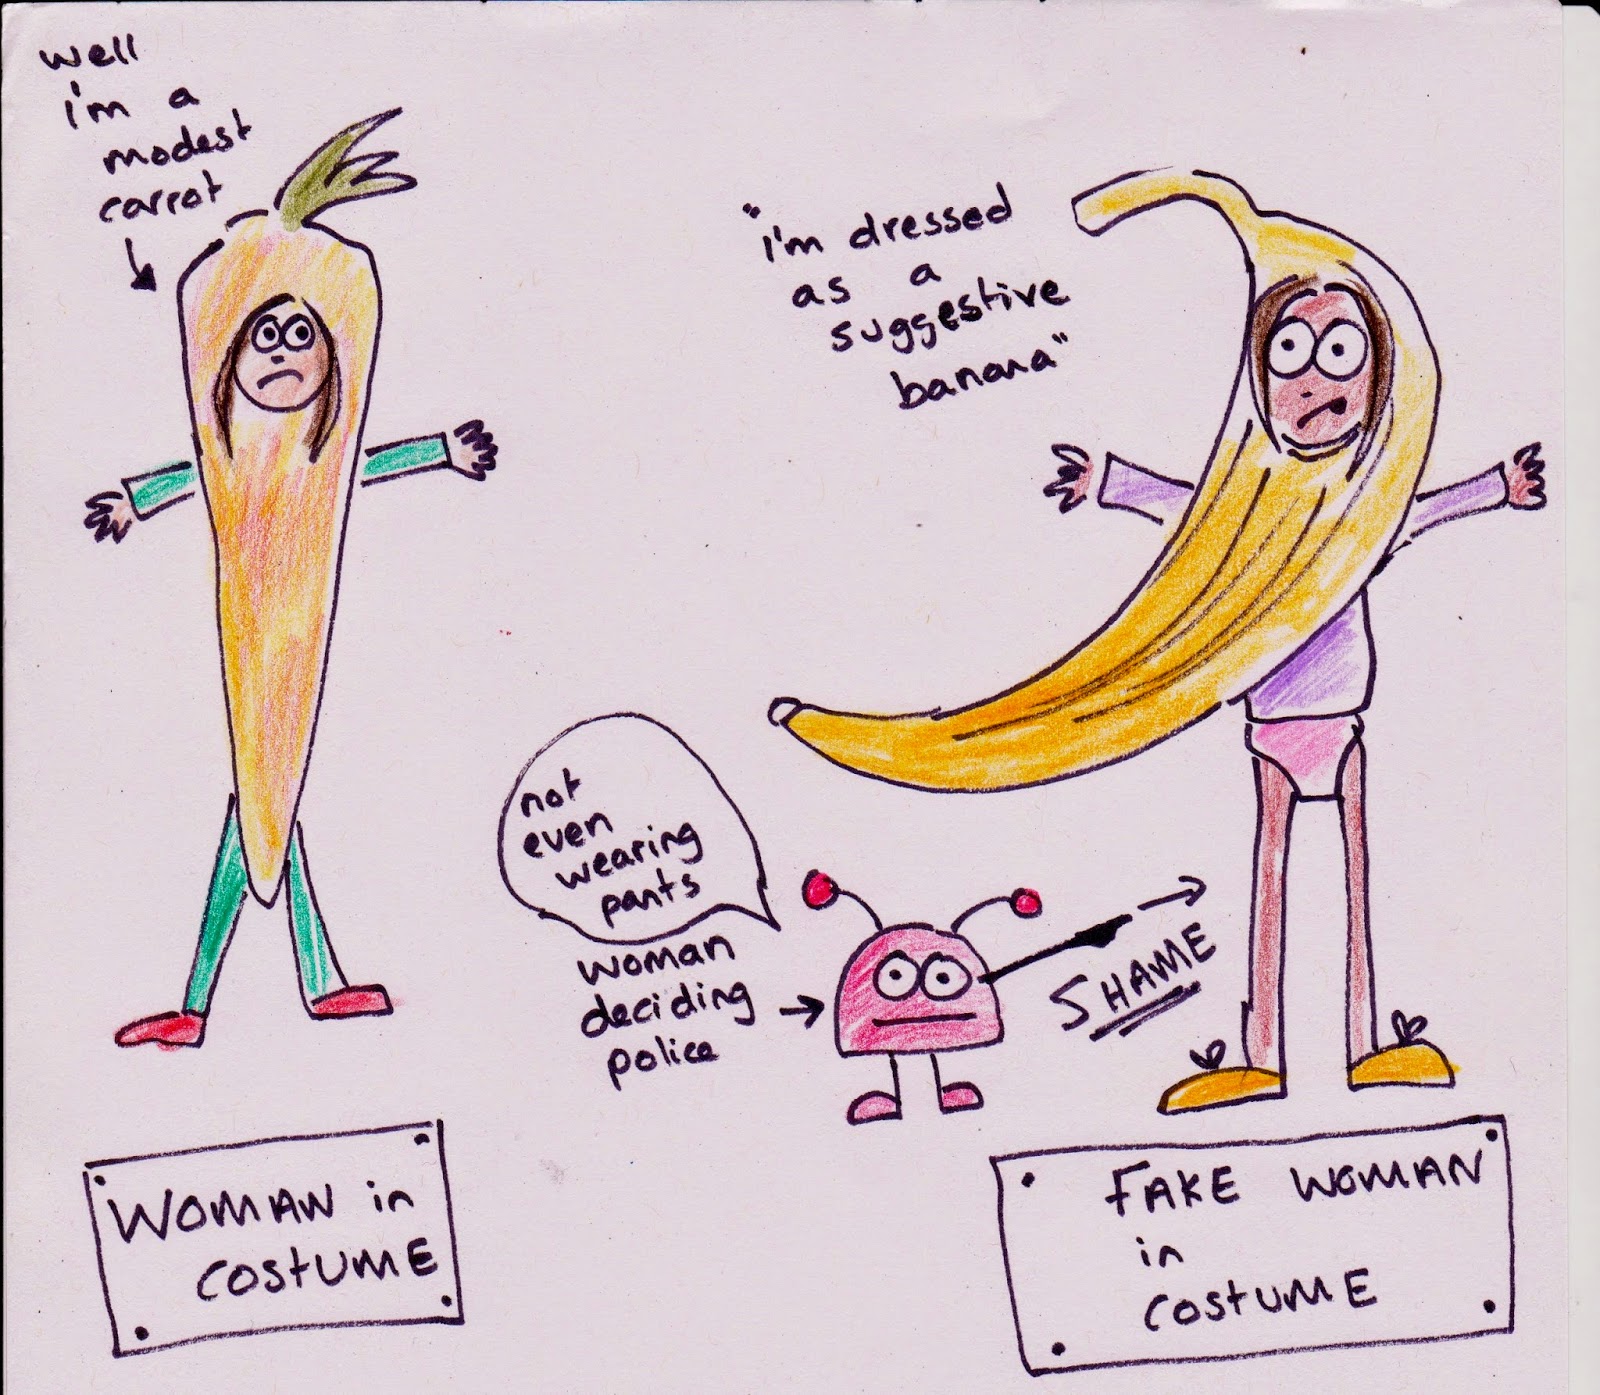 well
i'm a
modest
carrot
"i'm dressed
as a
suggestive
banana"
not
even
wearing
pants
woman
deciding
police
SHAME
WOMAN in
COSTUME
FAKE WOMAN
in
COSTUME